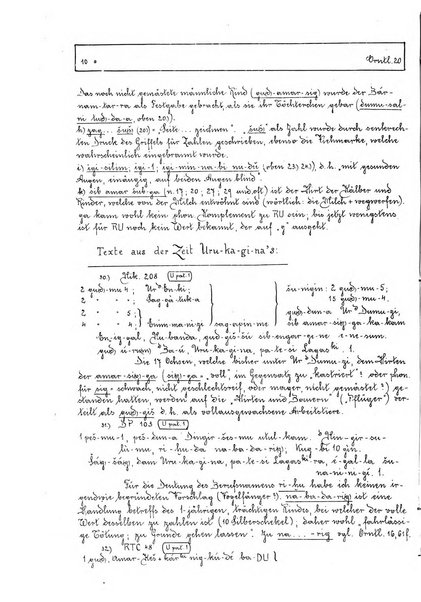 10 Orntl. 20
Das noch nicht gemästete männliche Rind (gud-amar-sig) wurde der Bár-
nam-tar-ra als Festgabe gebracht, als sie ihr Töchterchen gebar (dumu-sal-
ni tud-da-a, oben 20)).
h) zag... šuši (20) „Seite... zeichnen". šuši als Zahl wurde durch senkerech-
ten Druck des Griffels für Zahlen geschrieben, ebenso die Viehmarke, welche
wahrscheinlich eingebrannt wurde.
i) igi-silim; igi-1; igi-min-na-bi nu-dü (oben 23) 24)). d. h. „mit gesunden
Augen, einäugig, auf beiden Augen blind".
k) sib amar sub-ga (n. 17; 20; 27; 29 und oft) ist der Hirt der Kälber und
Rinder, welche von der Milch entwöhnt sind (wörtlich: die Milch + wegwerfen).
ga kann wohl kein phon. Complement zu RU sein; bis jetzt wenigstens
ist für RU noch kein Wert bekannt, der auf „g" ausgeht.
Texte aus der Zeit Uru-ka-gi-na's:
30.) Nik. 208 U pat 1
2 gud-mu 4; Ur En-ki; šu-nigin: 2 gud-mu 5;
2 " " 4; Sag-gá-tuk-a 15 gud-mu 4;
2 " " 5; gud-dun-a Ur Dumu-zi,
4 " " 4; Enim-ma-ni-ze sag-apin-me sib amar-sig-ga-ka-kam
En-ig-gal, nu-banda, gud-giš-gi sib-anšu sar-engar-ge-ne e-ne-sum.
gud ú-rum Ba-ú, Uru-ka-gi-na, pa-te-si Lagas-ki. 1.
Die 17 Ochsen, welche bisher unter Ur Dumu-zi, dem Hirten
der amar-sig-ga (sig-ga = „voll", im Gegensatz zu „kastriert"? oder phon.
für sig = schwach, nicht geschlechtsreif, oder mager, nicht gemästet?) ge-
standen hatten, werden auf die „Hirten und Bauern" („Pflüger") ver-
teilt als gud-giš d. h. als vollausgewachsene Arbeitstiere.
31.) DP 103 U pat 1
1 péš-mu-1, péš-dun-a Dingir-šeš-mu utul-kam. Nin-gir-su-
lú-mu, ri-hu-da na-ba-da-rig; kug-bi 10 gín.
Šag-šag, dam Uru-ka-gi-na, pa-te-si Lagas-ki-ra, é-gal-la šu-
na-ni-gi. 1.
Für die Deutung des Berufsnamens ri-hu habe ich keinen ir-
gendwie begründeten Vorschlag (Vogelfänger?). na-ba-da-rig ist eine
Handlung betreffs des 1-jährigen, trächtigen Rindes, bei welcher der volle
Wert desselben zu zahlen ist (10 Silberschekel); daher wohl „fahrlässi-
ge Tötung; zu Grunde gehen lassen". zu na...-rig vgl. Orntl. 16, 61f.
32.) RTC 48 U pat 1
1 gud, Amar-Keš kár ki nig-kú-dé ba-DU